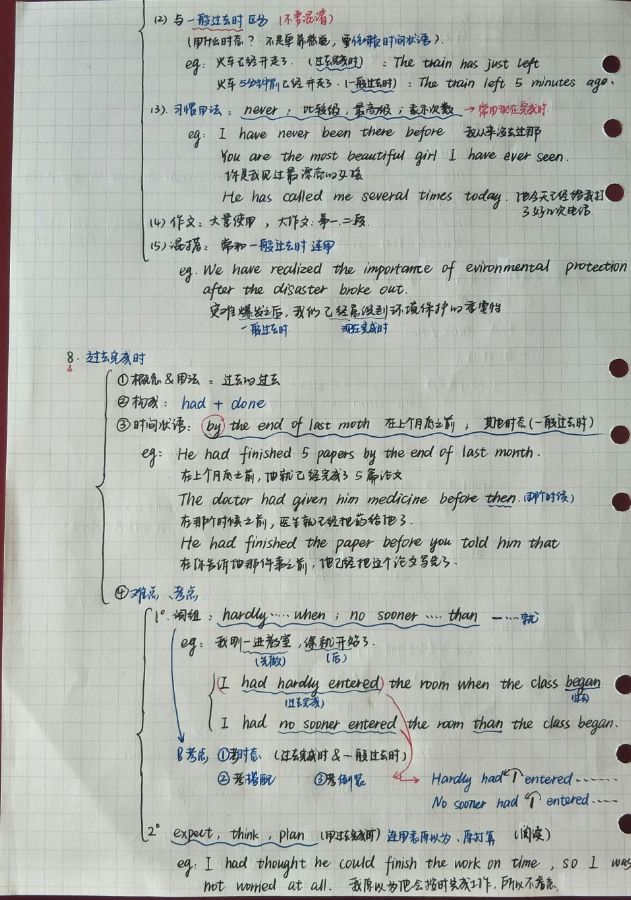 (2) 与一般过去时区分 (不要混淆)
(用什么时态? 不是单靠感觉, 要依赖时间状语).
eg: 火车已经开走了. (过去完成时) : The train has just left
火车5分钟前已经开走了. (一般过去时) : The train left 5 minutes ago.
(3). 习惯用法: never; 比较级, 最高级; 表示次数 → 常用现在完成时
eg: I have never been there before 我从来没去过那
You are the most beautiful girl I have ever seen.
你是我见过最漂亮的女孩
He has called me several times today. 他今天已经给我打
了好几次电话
(4) 作文: 大量使用, 大作文: 第一.二段.
(5) 混搭: 常和一般过去时连用
eg. We have realized the importance of evironmental protection
after the disaster broke out.
灾难爆发之后, 我们已经意识到环境保护的重要性
一般过去时 现在完成时
8. 过去完成时
① 概念&用法: 过去的过去
② 构成: had + done
③ 时间状语: by the end of last moth 在上个月底之前; 其他时态(一般过去时)
eg: He had finished 5 papers by the end of last month.
在上个月底之前, 他就已经完成了5篇论文
The doctor had given him medicine before then. (那个时候)
在那个时候之前, 医生就已经把药给他了.
He had finished the paper before you told him that
在你告诉他那件事之前, 他已经把这个论文写完了.
④ 难点、考点
1° 词组: hardly……when; no sooner ……than 一……就
eg: 我刚一进教室, 课就开始了.
(先做) (后)
(I had hardly entered) the room when the class began
(过去完成) (过去)
I had no sooner entered the room than the class began.
考点 ①考时态 (过去完成时&一般过去时)
②考搭配 ③考倒装 Hardly had I entered……
No sooner had I entered……
2° expect, think, plan (用过去完成时) 连用表原以为、原打算 (阅读)
eg: I had thought he could finish the work on time, so I was
not worried at all. 我原以为他会按时完成工作, 所以不着急.